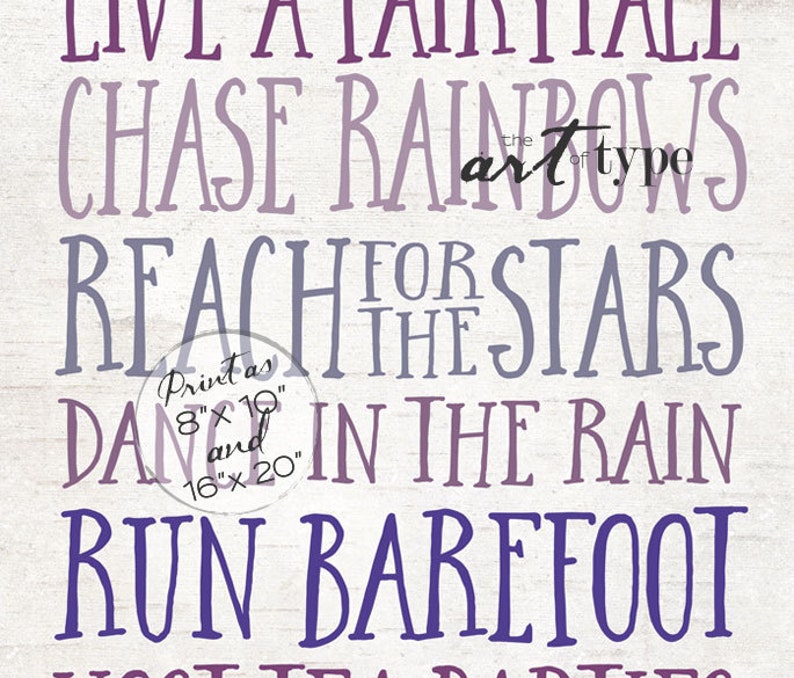 LIVE A FAIRYTALE
CHASE RAINBOWS
the art of type
REACH FOR THE STARS
Print as
8"x 10"
and
16"x 20"
DANCE IN THE RAIN
RUN BAREFOOT
HOST TEA PARTIES